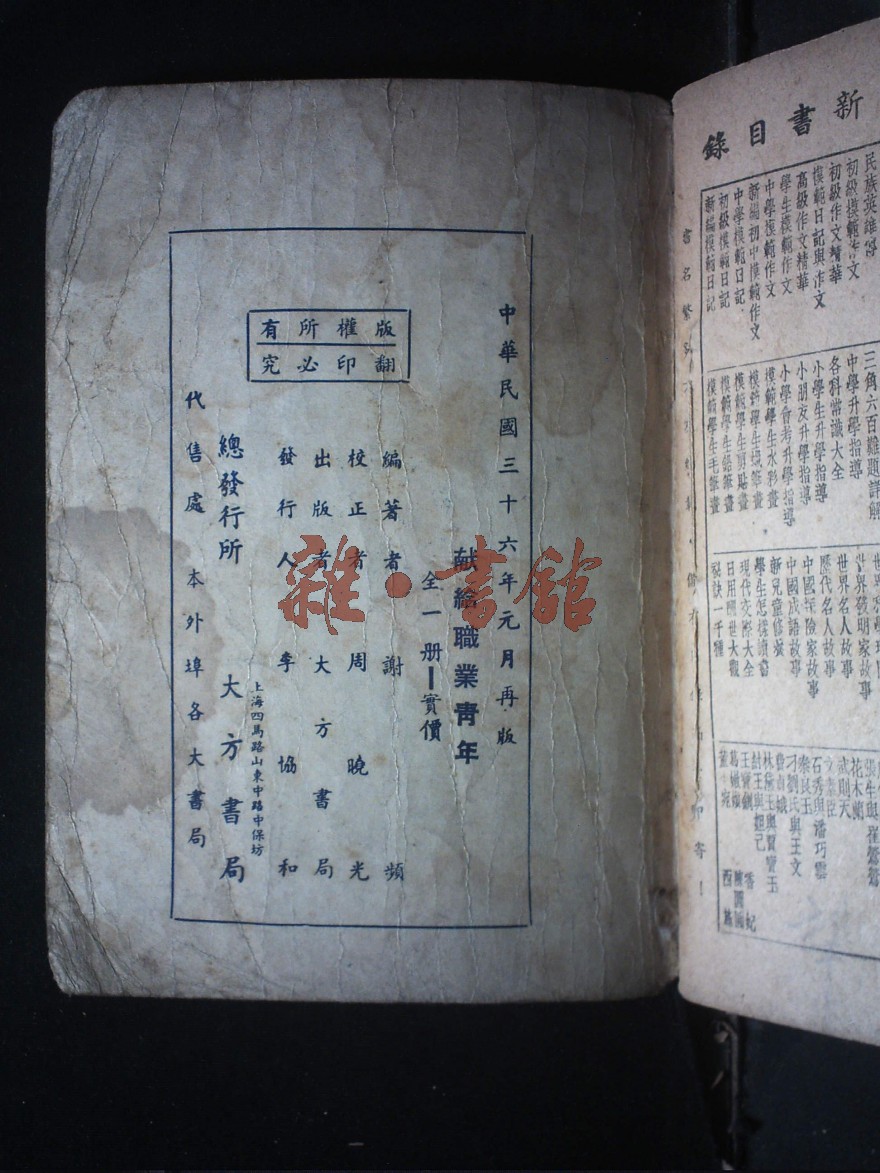 中華民國三十六年元月再版
献給職業青年
全一册實價
版權所有
翻印必究
編著者謝頻
校正者周曉光
出版者大方書局
發行人李協和
總發行所大方書局
上海四馬路山東中路中保坊
代售處本外埠各大書局
雜·書館
新書目錄
初級模範作文
初級作文精華
模範日記與作文
高級作文精華
學生模範作文
中學模範作文
新編初中模範作文
中學模範日記
初級模範日記
新編模範日記
三角六百難題詳解
中學升學指導
各科常識大全
小學生升學指導
小朋友升學指導
小學會考升學指導
模範學生水彩畫
模範學生蠟筆畫
模範學生剪貼畫
模範學生鉛筆畫
模範學生毛筆畫
世界發明家故事
世界名人故事
歷代名人故事
中國探險家故事
中國成語故事
新兒童修養
學生怎樣讀書
現代交際大全
日用處世大觀
秘訣一千種
花木蘭
武則天
石秀與潘巧雲
刁劉氏與王文
林黛玉與賈寶玉
紂王與妲己
香妃